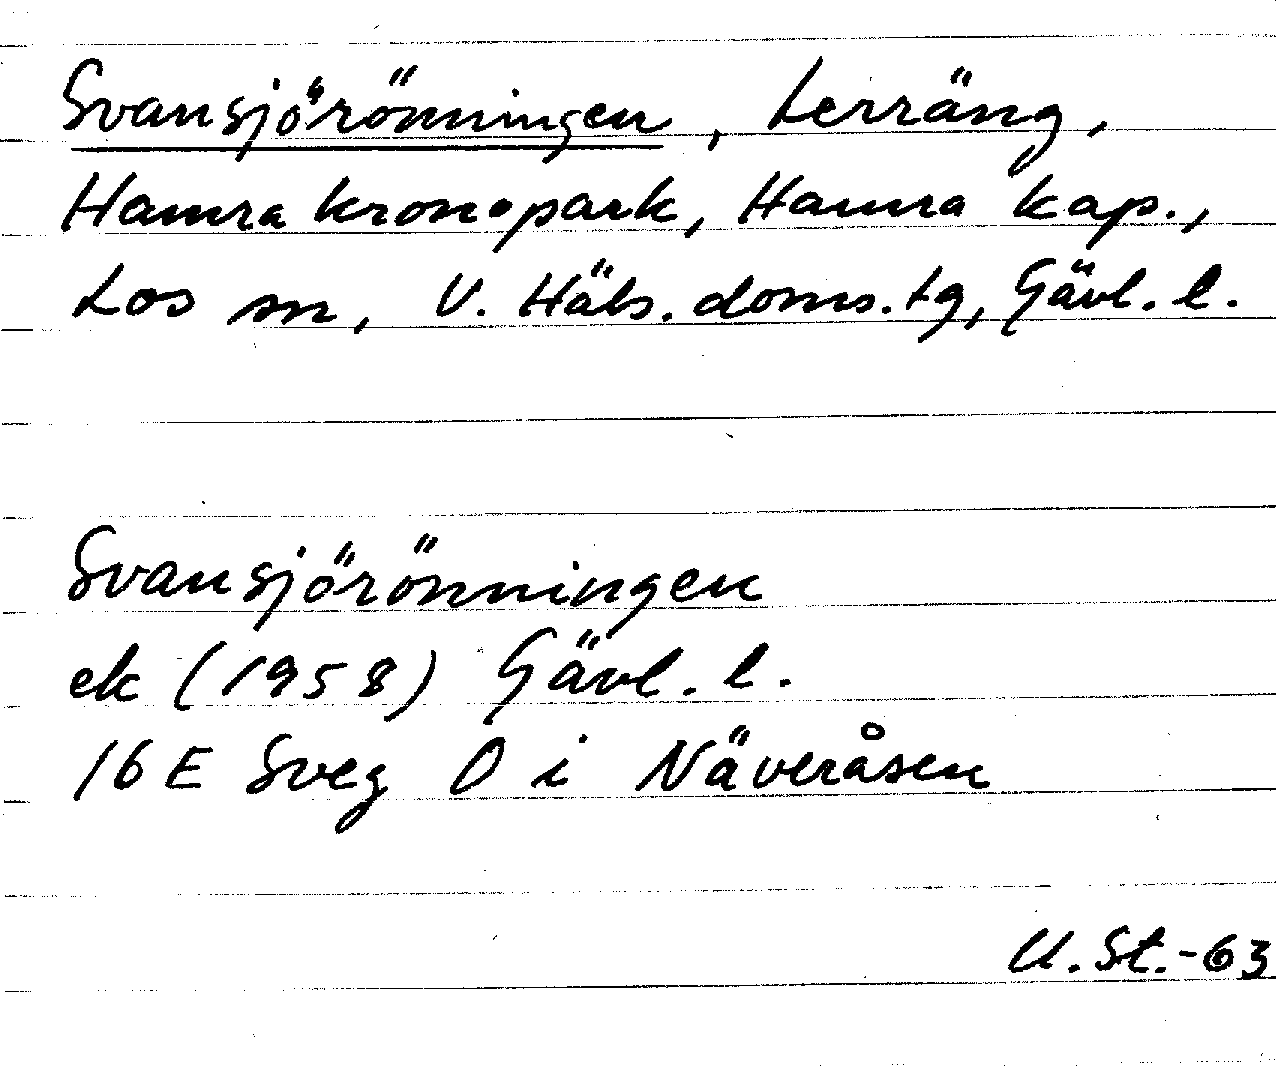 Svansjörönningen, terräng,
Hamra kronopark, Hamra kap.,
Los sn, V. Häls. doms. tg, Gävl. l.
Svansjörönningen
ek (1958) Gävl. l.
16 E Sveg O i Näveråsen
U. St.-63